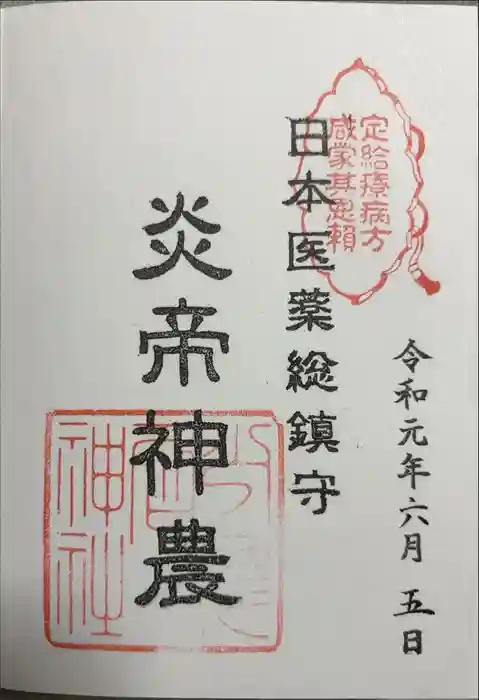 定給療病方
咸蒙其恩頼
日本医薬総鎮守
炎帝神農
令和元年六月 五日
神社